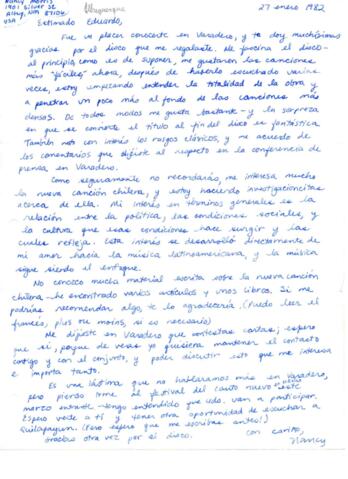 Nancy Morris
1901 Silver SE
Albuq, NM 87106
USA
Albuquerque
27 enero 1982
Estimado Eduardo,
Fue un placer conocerte en Varadero, y te doy muchísimas
gracias por el disco que me regalaste. Me fascina el disco-
al principio, como es de suponer, me gustaron las canciones
más "fáciles" ahora, después de haberlo escuchado varias
veces, estoy empezando entender la totalidad de la obra y
a penetrar un poco más al fondo de las canciones más
densas. De todos modos me gusta bastante - y la sorpresa
en que se convierte el título al fin del disco es fantástica.
También noto con interés los rasgos clásicos, y me acuerdo de
los comentarios que dijiste al respecto en la conferencia de
prensa en Varadero.
Como seguramente no recordarás, me interesa mucho
la nueva canción chilena, y estoy haciendo investigacioncitas
acerca de ella. Mi interés en términos generales es la
relación entre la política, las condiciones sociales, y
la cultura que esas condiciones hace surgir y las
cuales refleja. Este interés se desarrolló directamente de
mi amor hacia la música latinoamericana, y la música
sigue siendo el enfoque.
No conozco mucha material escrita sobre la nueva canción
chilena - he encontrado varios artículos y unos libros. Si me
podrías recomendar algo, te lo agradecería. (Puedo leer el
francés, plus ou moins, si es necesario)
Me dijiste en Varadero que contestas cartas; espero
que sí, porque de veras yo quisiera mantener el contacto
contigo y con el conjunto, y poder discutir esto que me interesa
e importa tanto.
Es una lástima que no hablaramos más en Varadero,
pero pienso irme al festival del canto nuevo este
marzo entrante - tengo entendido que Uds. van a participar.
Espero verte a ti y tener otra oportunidad de escuchar a
Quilapayun. (Pero espero que me escribas antes!)
Gracias otra vez por el disco.
con cariño,
Nancy